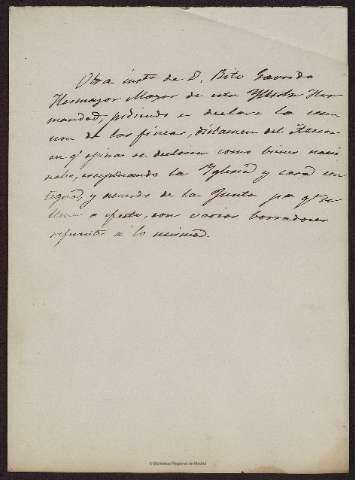 Otra inst.ª de D. Tito Garrido
Hermayor Mayor de esta Yltstr. Her-
mandad, pidiendo se declare la exen-
cion de las fincas, dictamen del
en q.e opinan se declaren como bienes nacio-
nales, esceptuando la Yglesia y casa con-
tigua, y acuerdo de la Junta para q.e se
lleve a efecto, con varios borradores
referentes a lo mismo.
© Biblioteca Regional de Madrid